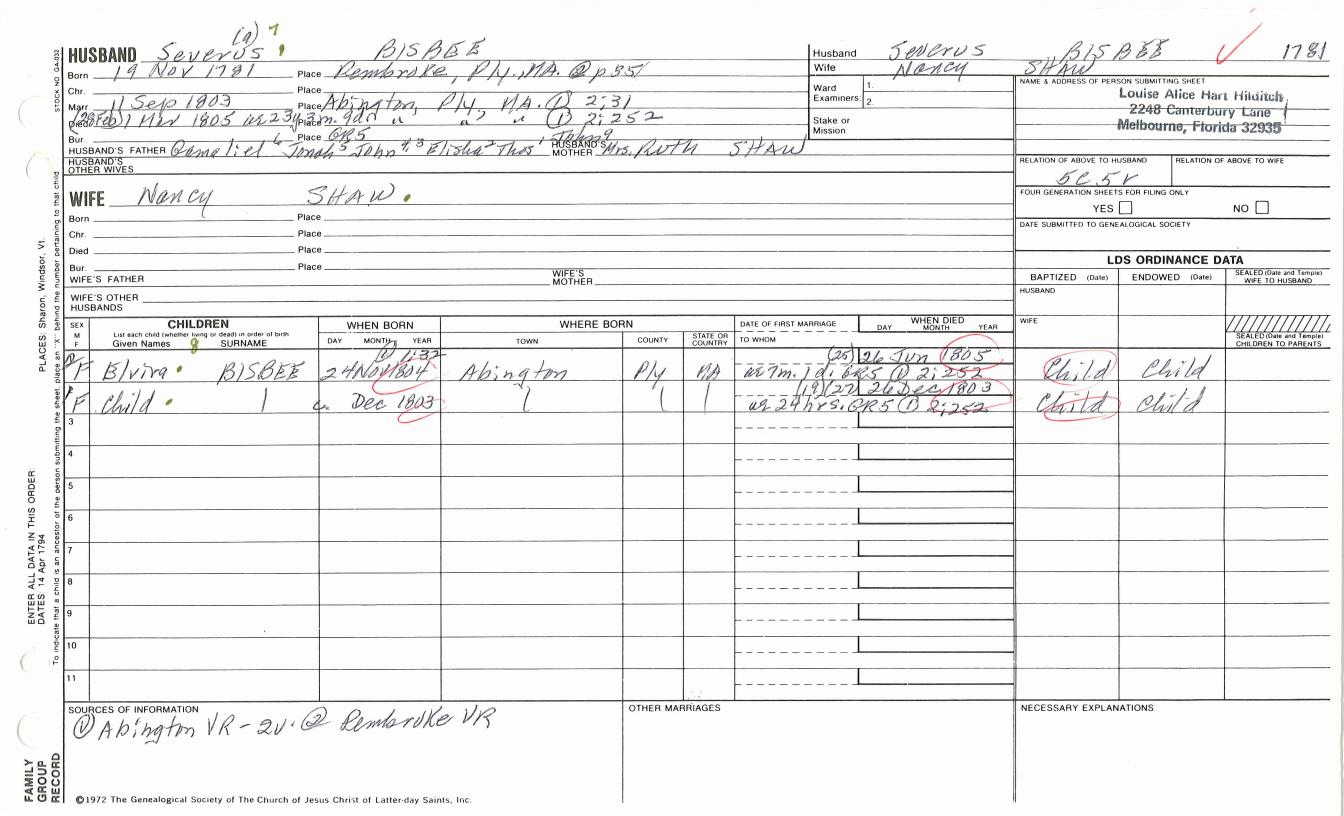 (a) 7
HUSBAND Severus BISBEE
Born 19 Nov 1781 Place Pembroke, Ply., MA. ② p35
Chr. Place
Marr 11 Sep 1803 Place Abington, Ply, MA. ① 2:31
Died (28 Feb) 1 Mar 1805 Place " " " ① 2:252
Bur. Place GR5
HUSBAND'S FATHER Gamaliel 6 Jonah 5 John 4,3 Elisha 2 Thos 1 HUSBAND'S MOTHER Mrs. Ruth SHAW
HUSBAND'S OTHER WIVES
WIFE Nancy SHAW
Born Place
Chr. Place
Died Place
Bur. Place
WIFE'S FATHER WIFE'S MOTHER
WIFE'S OTHER HUSBANDS
Husband Severus BISBEE 1781
Wife Nancy SHAW
Ward Examiners: 1. 2.
Stake or Mission
NAME & ADDRESS OF PERSON SUBMITTING SHEET
Louise Alice Hart Hilditch
2248 Canterbury Lane
Melbourne, Florida 32935
RELATION OF ABOVE TO HUSBAND RELATION OF ABOVE TO WIFE
5C5r
FOUR GENERATION SHEETS FOR FILING ONLY
YES NO
DATE SUBMITTED TO GENEALOGICAL SOCIETY
LDS ORDINANCE DATA
BAPTIZED (Date) ENDOWED (Date) SEALED (Date and Temple) WIFE TO HUSBAND
HUSBAND
WIFE
SEALED (Date and Temple) CHILDREN TO PARENTS
SEX M F
CHILDREN
List each child (whether living or dead) in order of birth
Given Names 8 SURNAME
WHEN BORN
DAY MONTH YEAR
WHERE BORN
TOWN COUNTY STATE OR COUNTRY
DATE OF FIRST MARRIAGE
TO WHOM
WHEN DIED
DAY MONTH YEAR
① 1:32 (25) 26 Jun 1805
F Elvira BISBEE 24 Nov 1804 Abington Ply MA ae 7m. 1d. GR5 ① 2:252 Child Child
(19)(27) 26 Dec 1803
F Child c. Dec 1803 ae 24 hrs. GR5 ① 2:252 Child Child
3
4
5
6
7
8
9
10
11
SOURCES OF INFORMATION
① Abington VR - 2v. ② Pembroke VR
OTHER MARRIAGES
NECESSARY EXPLANATIONS
©1972 The Genealogical Society of The Church of Jesus Christ of Latter-day Saints, Inc.
STOCK NO. GA-033
PLACES: Sharon, Windsor, Vt.
To indicate that a child is an ancestor of the person submitting the sheet, place an "X" behind the number pertaining to that child
ENTER ALL DATA IN THIS ORDER
DATES 14 Apr 1794
FAMILY
GROUP
RECORD